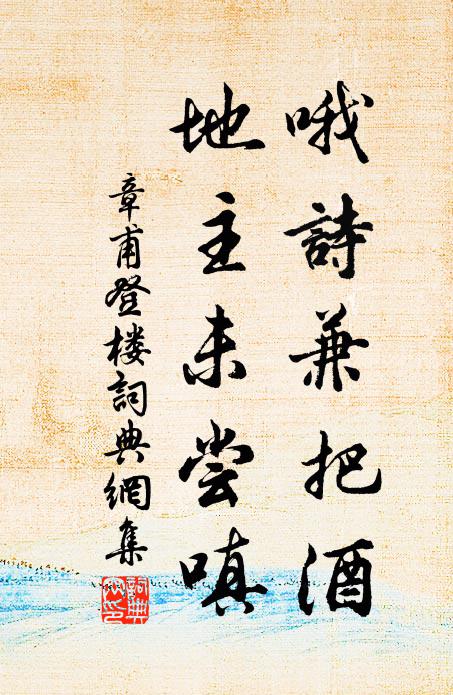 哦詩兼把酒
地主未尝嗔
章甫登楼詞典網集